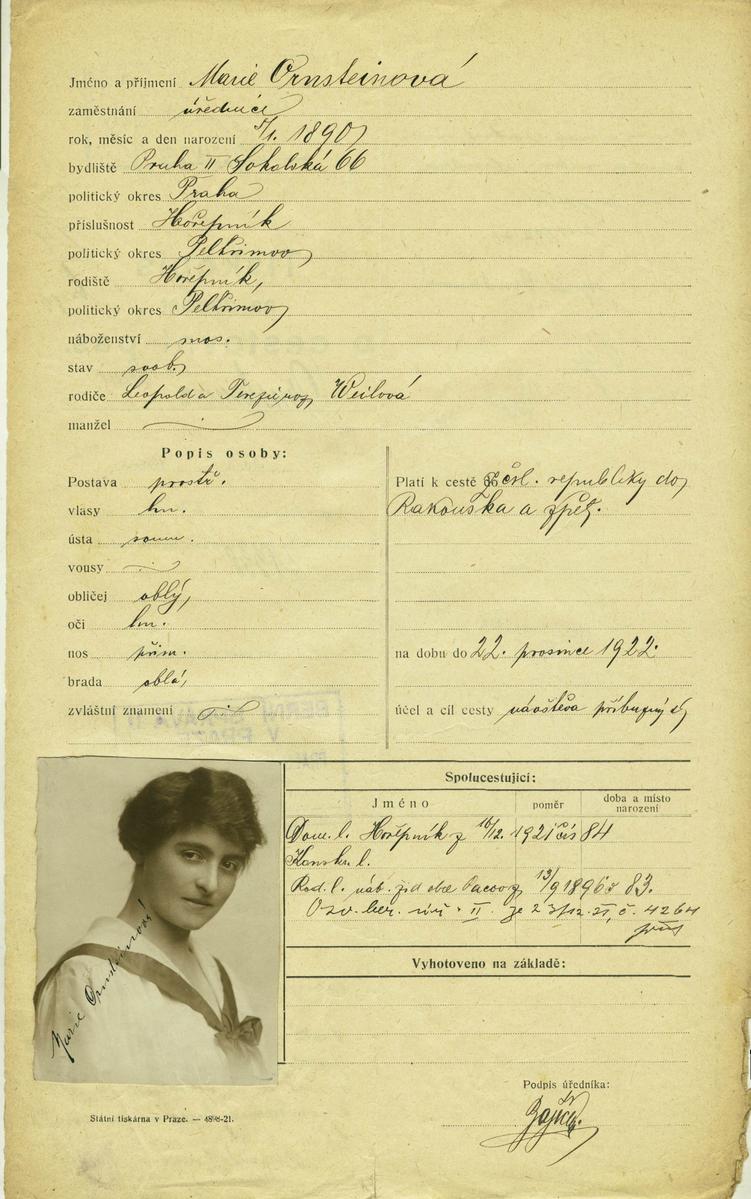 Jméno a příjmení Marie Ornsteinová
zaměstnání úřednice
rok, měsíc a den narození 5/1. 1890
bydliště Praha II Sokolská 66
politický okres Praha
příslušnost Hořepník
politický okres Pelhřimov
rodiště Hořepník,
politický okres Pelhřimov
náboženství mos.
stav svob.
rodiče Leopold a Terezie roz. Weilová
manžel
Popis osoby:
Postava prostř.
vlasy hn.
ústa soum.
vousy
obličej oblý,
oči hn.
nos přim.
brada oblá,
zvláštní znamení
Platí k cestě z čsl. republiky do
Rakouska a zpět.
na dobu do 22. prosince 1922.
účel a cíl cesty návštěva příbuzných
BERNÍ SPRÁVA II
V PRAZE
Marie Ornsteinová
Spolucestující:
Jméno poměr doba a místo narození
Dom. l. Hořepník z 16/12. 1921 čís 84
Konskr. l.
Rod. l. náb. žid. obce Pacov z 13/9 1896 č 83.
Osv. ber. II. ze 23/12. 21, č. 4264
Vyhotoveno na základě:
Podpis úředníka:
Státní tiskárna v Praze. — 4898-21.